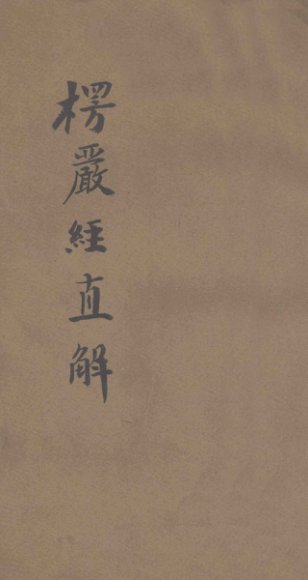 楞嚴經直解